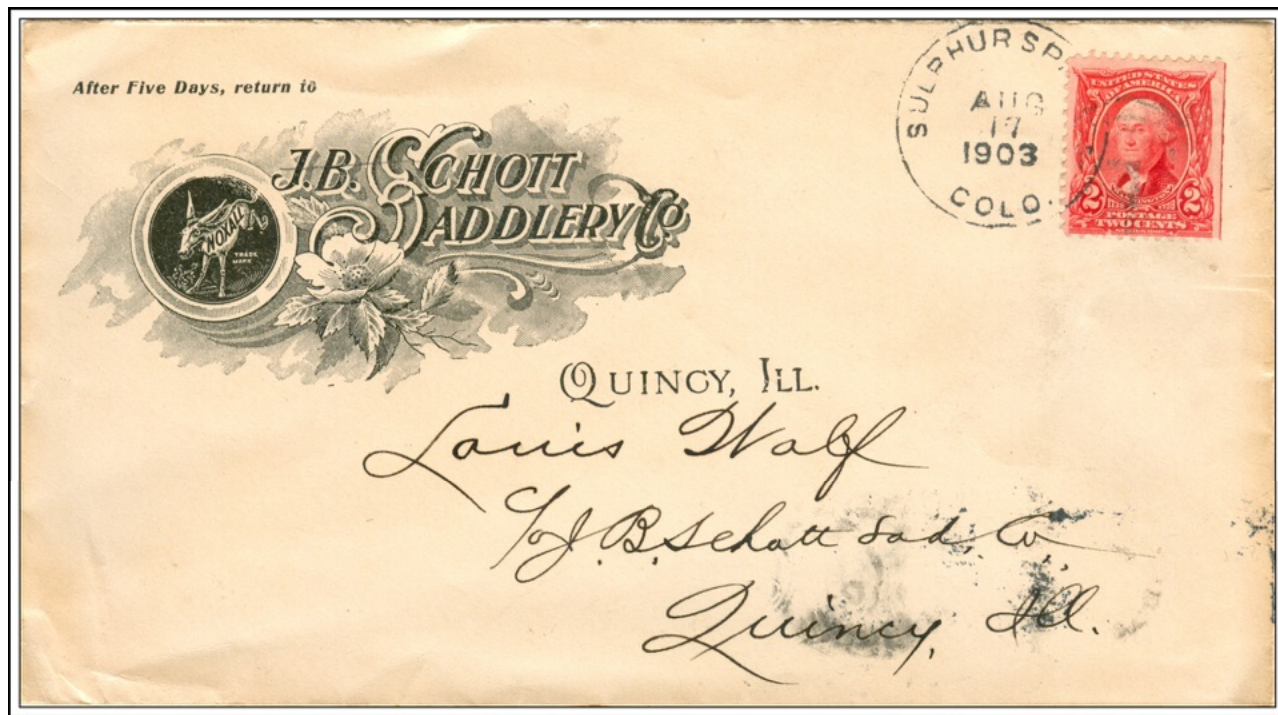 After Five Days, return to
J.B. SCHOTT
SADDLERY Co
NOXALL
TRADE
MARK
QUINCY, ILL.
SULPHUR SP
AUG
17
1903
COLO.
UNITED STATES
OF AMERICA
2 2
POSTAGE
TWO CENTS
Louis Wolf
c/o J. B. Schott Sad. Co.,
Quincy, Ill.